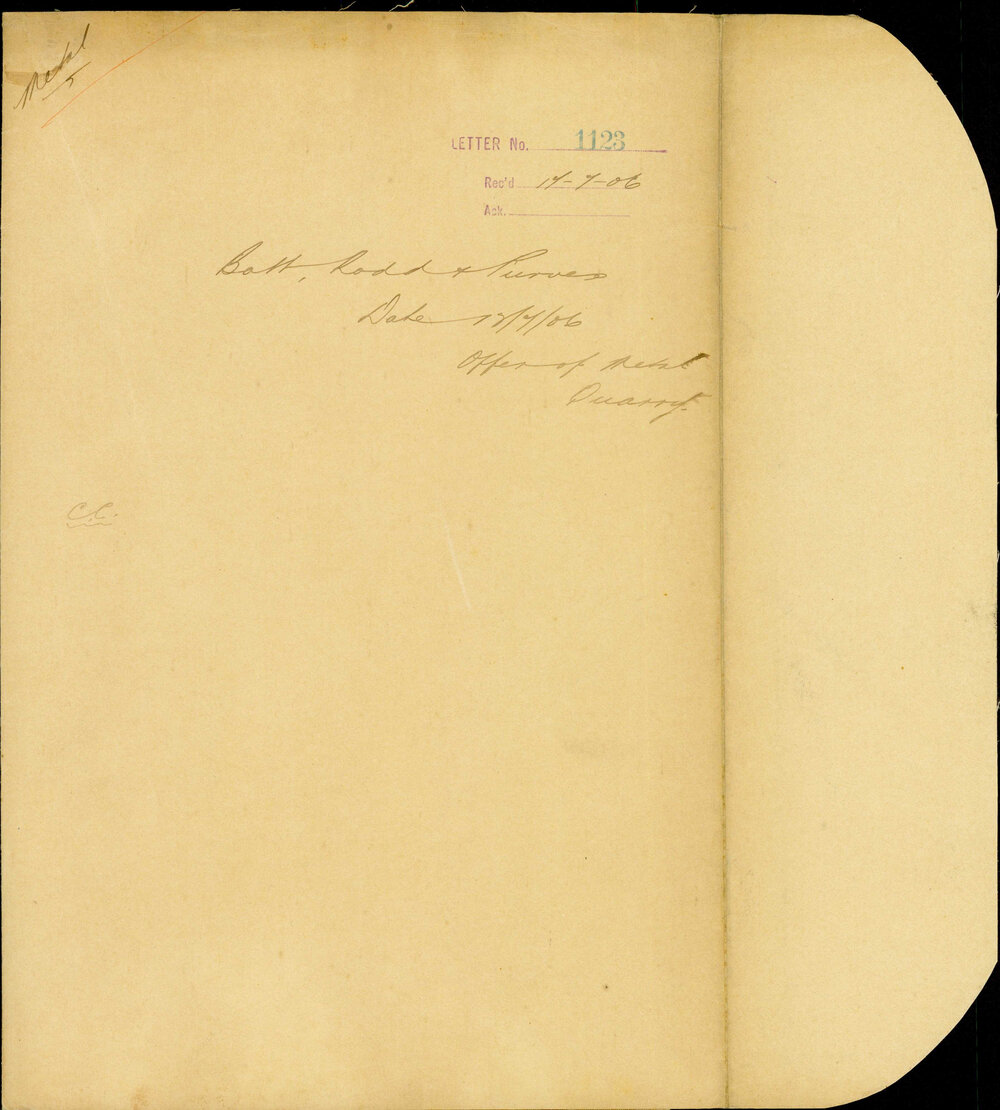 Metal
LETTER No. 1123
Rec'd 17-7-06
Ack.
Batt, Rodd & Purves
Date 17/7/06
Offer of Metal
Quarry.
C.C.